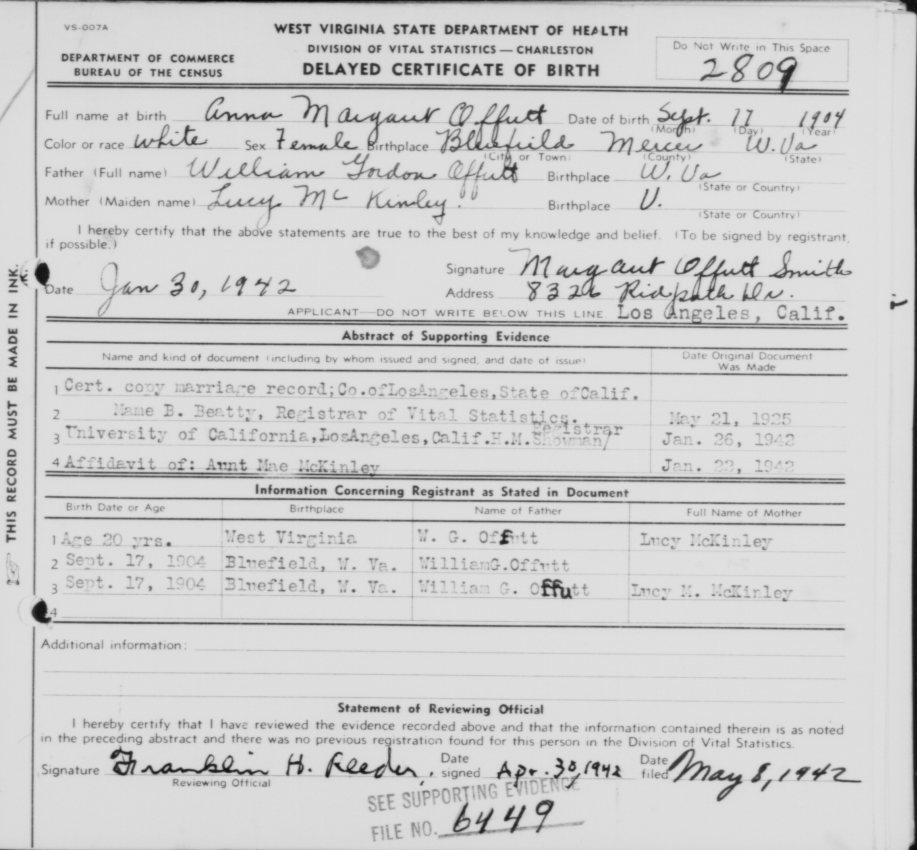 VS-007A
WEST VIRGINIA STATE DEPARTMENT OF HEALTH
DEPARTMENT OF COMMERCE
BUREAU OF THE CENSUS
DIVISION OF VITAL STATISTICS — CHARLESTON
DELAYED CERTIFICATE OF BIRTH
Do Not Write in This Space
2809
Full name at birth Anna Margaut Offutt Date of birth Sept. 17 1904
(Month) (Day) (Year)
Color or race white Sex Female Birthplace Bluefield Mercer W. Va
(City or Town) (County) (State)
Father (Full name) William Gordon Offutt Birthplace W. Va
(State or Country)
Mother (Maiden name) Lucy Mc Kinley Birthplace V.
(State or Country)
I hereby certify that the above statements are true to the best of my knowledge and belief. (To be signed by registrant, if possible.)
Date Jan 30, 1942
Signature Margaut Offutt Smith
Address 8326 Ridpath Dr.
APPLICANT—DO NOT WRITE BELOW THIS LINE Los Angeles, Calif.
THIS RECORD MUST BE MADE IN INK.
Abstract of Supporting Evidence
Name and kind of document (including by whom issued and signed, and date of issue) Date Original Document Was Made
1 Cert. copy marriage record;Co.ofLosAngeles,State ofCalif.
2 Mame B. Beatty, Registrar of Vital Statistics. May 21, 1925
Registrar
3 University of California,LosAngeles,Calif.H.M.Showman/ Jan. 26, 1942
4 Affidavit of: Aunt Mae McKinley Jan. 22, 1942
Information Concerning Registrant as Stated in Document
Birth Date or Age Birthplace Name of Father Full Name of Mother
1 Age 20 yrs. West Virginia W. G. Offutt Lucy McKinley
2 Sept. 17, 1904 Bluefield, W. Va. WilliamG.Offutt
3 Sept. 17, 1904 Bluefield, W. Va. William G. Offutt Lucy M. McKinley
4
Additional information:
Statement of Reviewing Official
I hereby certify that I have reviewed the evidence recorded above and that the information contained therein is as noted
in the preceding abstract and there was no previous registration found for this person in the Division of Vital Statistics.
Signature Franklin H. Reeder, Date signed Apr. 30, 1942 Date filed May 8, 1942
Reviewing Official
SEE SUPPORTING EVIDENCE
FILE NO. 6449